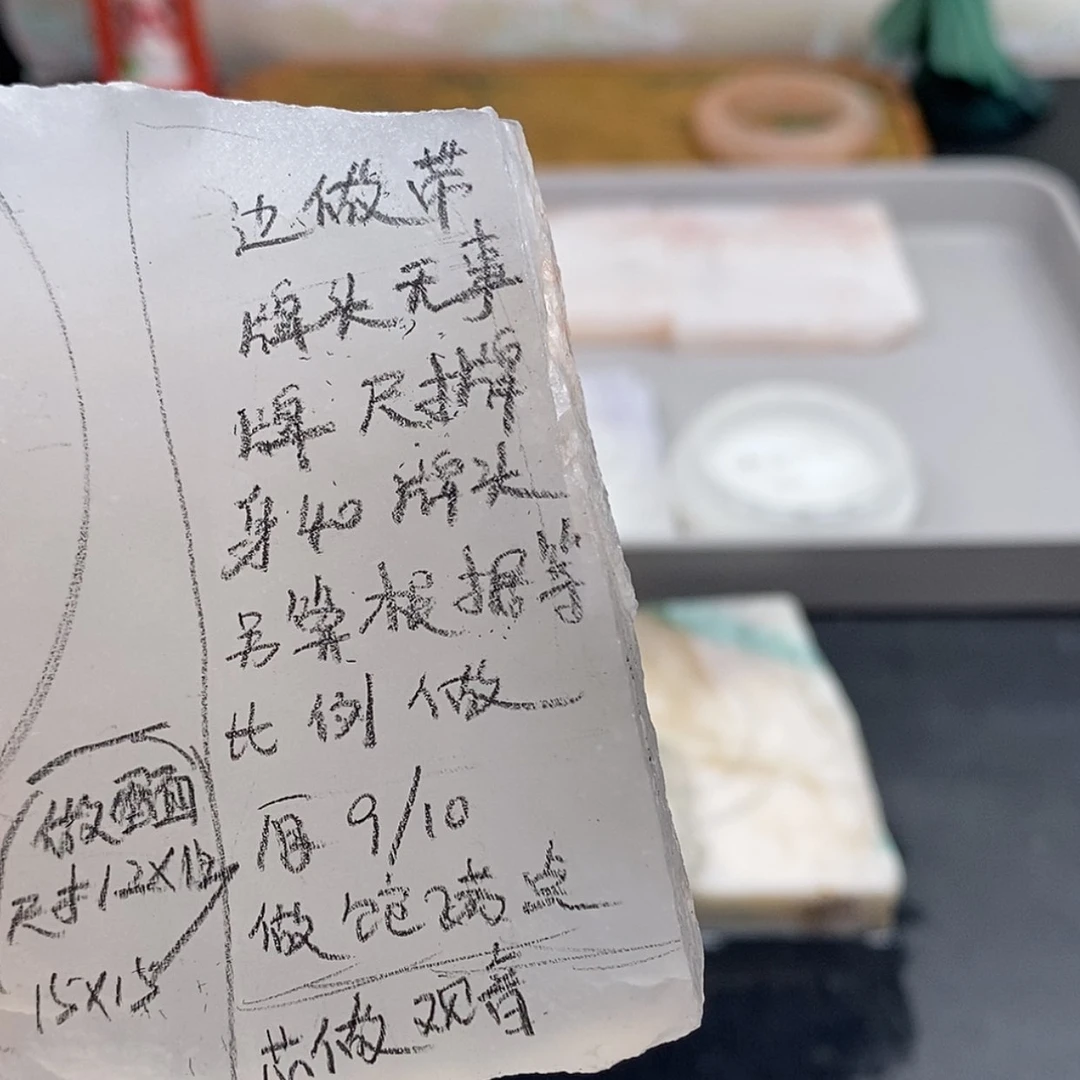 边做带
牌头无事
牌 尺寸牌
身40 牌头
另算根据等
比例做
厚 9/10
做饱满点
芯做观音
做
尺寸12X12
15X15